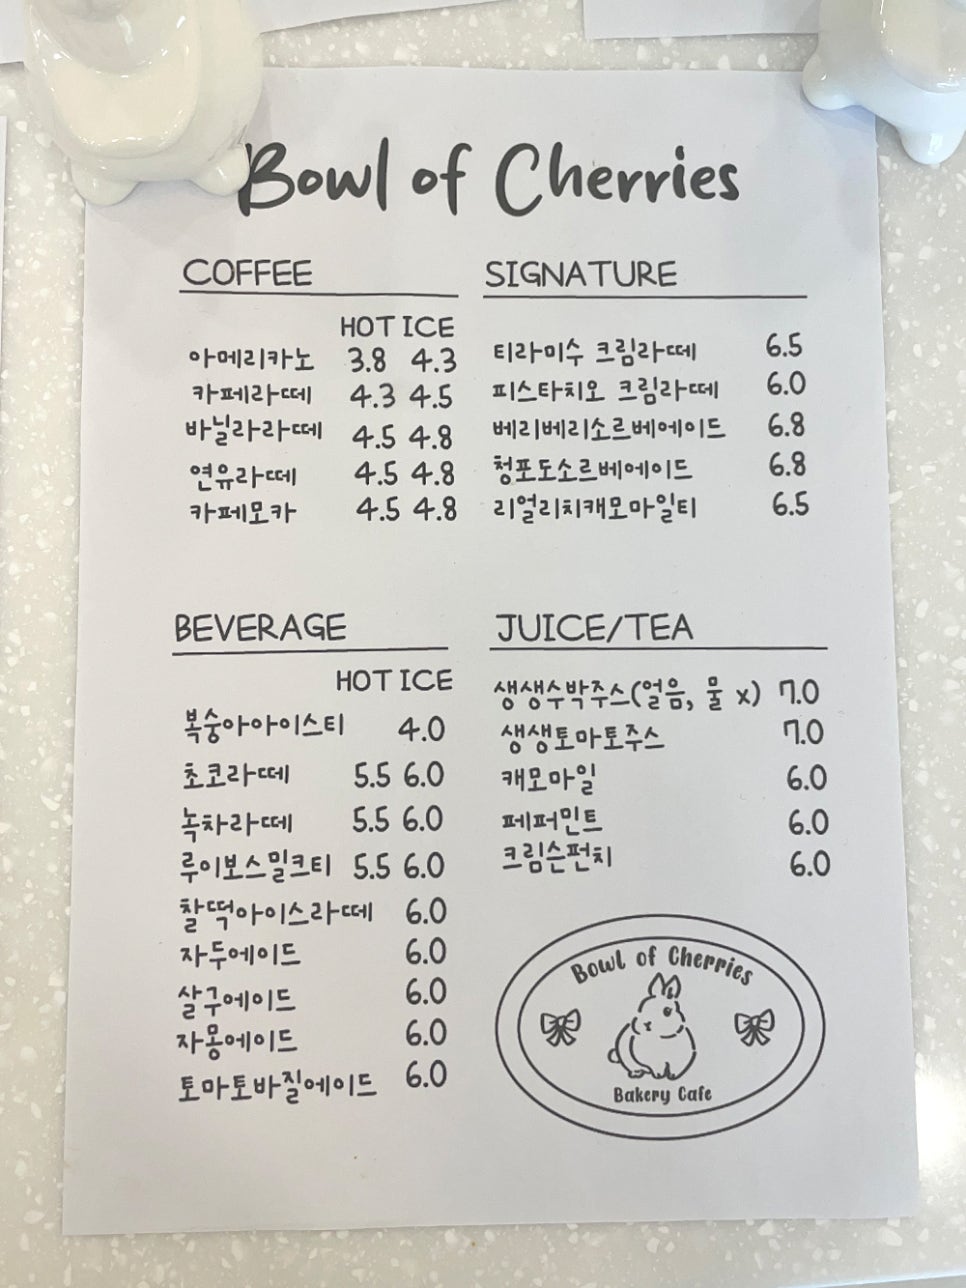 Bowl of Cherries
COFFEE
HOT ICE
아메리카노 3.8 4.3
카페라떼 4.3 4.5
바닐라라떼 4.5 4.8
연유라떼 4.5 4.8
카페모카 4.5 4.8
SIGNATURE
티라미수 크림라떼 6.5
피스타치오 크림라떼 6.0
베리베리소르베에이드 6.8
청포도소르베에이드 6.8
리얼리치캐모마일티 6.5
BEVERAGE
HOT ICE
복숭아아이스티 4.0
초코라떼 5.5 6.0
녹차라떼 5.5 6.0
루이보스밀크티 5.5 6.0
찰떡아이스라떼 6.0
자두에이드 6.0
살구에이드 6.0
자몽에이드 6.0
토마토바질에이드 6.0
JUICE/TEA
생생수박주스(얼음, 물 x) 7.0
생생토마토주스 7.0
캐모마일 6.0
페퍼민트 6.0
크림슨펀치 6.0
Bowl of Cherries
Bakery Cafe